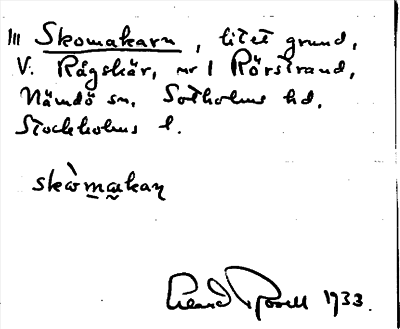 III Skomakarn, litet grund,
V. Rågskär, nr 1 Rörstrand,
Nämdö sn. Sotholms hd.
Stockholms l.
skòmakaɳ
1933.